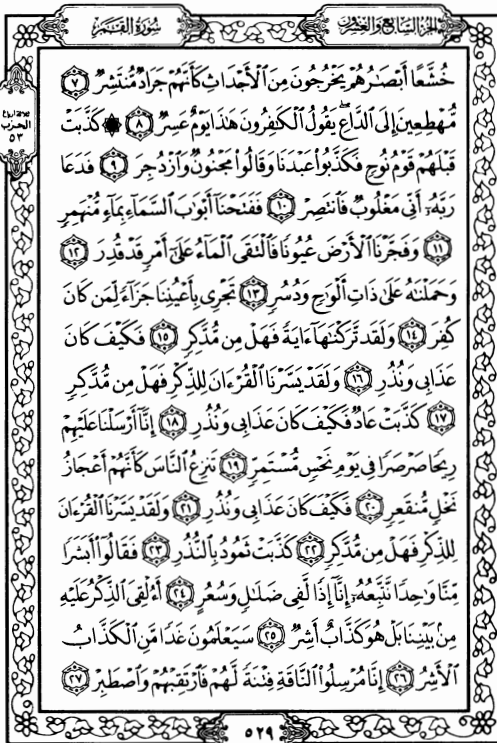 الجزء السابع والعشرون
سورة القمر
ثلاثة أرباع
الحزب
٥٣
خُشَّعًا أَبْصَـٰرُهُمْ يَخْرُجُونَ مِنَ ٱلْأَجْدَاثِ كَأَنَّهُمْ جَرَادٌ مُّنتَشِرٌ ٧
مُّهْطِعِينَ إِلَى ٱلدَّاعِ يَقُولُ ٱلْكَـٰفِرُونَ هَـٰذَا يَوْمٌ عَسِرٌ ٨ ۞ كَذَّبَتْ
قَبْلَهُمْ قَوْمُ نُوحٍ فَكَذَّبُوا۟ عَبْدَنَا وَقَالُوا۟ مَجْنُونٌ وَٱزْدُجِرَ ٩ فَدَعَا
رَبَّهُۥٓ أَنِّى مَغْلُوبٌ فَٱنتَصِرْ ١٠ فَفَتَحْنَآ أَبْوَٰبَ ٱلسَّمَآءِ بِمَآءٍ مُّنْهَمِرٍ
١١ وَفَجَّرْنَا ٱلْأَرْضَ عُيُونًا فَٱلْتَقَى ٱلْمَآءُ عَلَىٰٓ أَمْرٍ قَدْ قُدِرَ ١٢
وَحَمَلْنَـٰهُ عَلَىٰ ذَاتِ أَلْوَٰحٍ وَدُسُرٍ ١٣ تَجْرِى بِأَعْيُنِنَا جَزَآءً لِّمَن كَانَ
كُفِرَ ١٤ وَلَقَد تَّرَكْنَـٰهَآ ءَايَةً فَهَلْ مِن مُّدَّكِرٍ ١٥ فَكَيْفَ كَانَ
عَذَابِى وَنُذُرِ ١٦ وَلَقَدْ يَسَّرْنَا ٱلْقُرْءَانَ لِلذِّكْرِ فَهَلْ مِن مُّدَّكِرٍ
١٧ كَذَّبَتْ عَادٌ فَكَيْفَ كَانَ عَذَابِى وَنُذُرِ ١٨ إِنَّآ أَرْسَلْنَا عَلَيْهِمْ
رِيحًا صَرْصَرًا فِى يَوْمِ نَحْسٍ مُّسْتَمِرٍّ ١٩ تَنزِعُ ٱلنَّاسَ كَأَنَّهُمْ أَعْجَازُ
نَخْلٍ مُّنقَعِرٍ ٢٠ فَكَيْفَ كَانَ عَذَابِى وَنُذُرِ ٢١ وَلَقَدْ يَسَّرْنَا ٱلْقُرْءَانَ
لِلذِّكْرِ فَهَلْ مِن مُّدَّكِرٍ ٢٢ كَذَّبَتْ ثَمُودُ بِٱلنُّذُرِ ٢٣ فَقَالُوٓا۟ أَبَشَرًا
مِّنَّا وَٰحِدًا نَّتَّبِعُهُۥٓ إِنَّآ إِذًا لَّفِى ضَلَـٰلٍ وَسُعُرٍ ٢٤ أَءُلْقِىَ ٱلذِّكْرُ عَلَيْهِ
مِنۢ بَيْنِنَا بَلْ هُوَ كَذَّابٌ أَشِرٌ ٢٥ سَيَعْلَمُونَ غَدًا مَّنِ ٱلْكَذَّابُ
ٱلْأَشِرُ ٢٦ إِنَّا مُرْسِلُوا۟ ٱلنَّاقَةِ فِتْنَةً لَّهُمْ فَٱرْتَقِبْهُمْ وَٱصْطَبِرْ ٢٧
٥٢٩